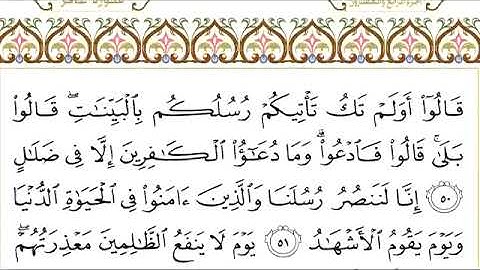 سورة غافر الجزء الرابع والعشرون
قَالُوٓاْ أَوَلَمْ تَكُ تَأْتِيكُمْ رُسُلُكُم بِٱلْبَيِّنَٰتِ ۖ قَالُواْ
بَلَىٰ ۚ قَالُواْ فَٱدْعُواْ ۗ وَمَا دُعَٰٓؤُاْ ٱلْكَٰفِرِينَ إِلَّا فِى ضَلَٰلٍ
٥٠ إِنَّا لَنَنصُرُ رُسُلَنَا وَٱلَّذِينَ ءَامَنُواْ فِى ٱلْحَيَوٰةِ ٱلدُّنْيَا
وَيَوْمَ يَقُومُ ٱلْأَشْهَٰدُ ٥١ يَوْمَ لَا يَنفَعُ ٱلظَّٰلِمِينَ مَعْذِرَتُهُمْ ۖ